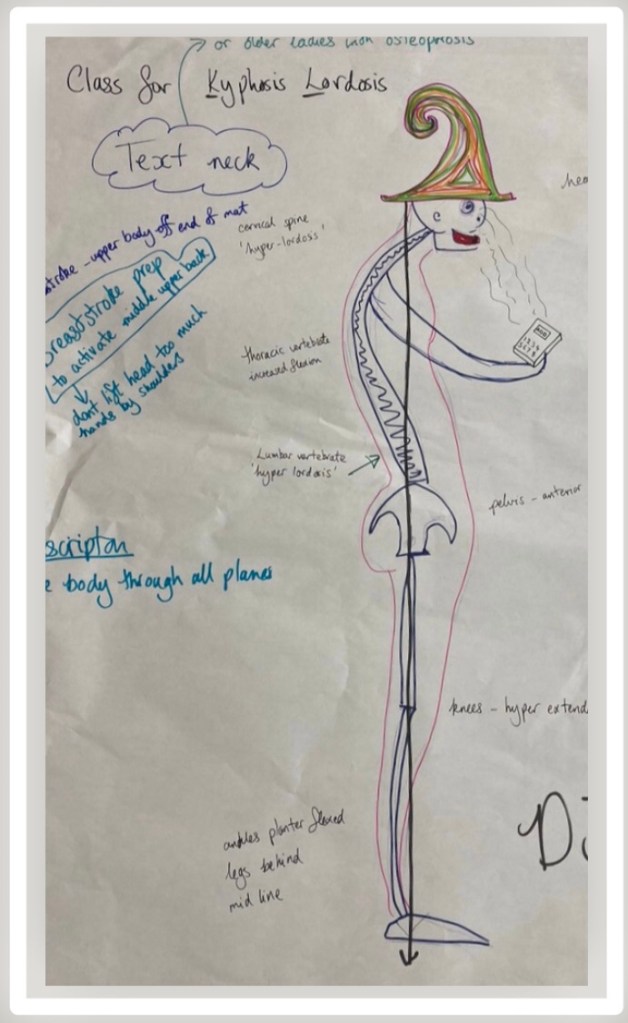 or older ladies with osteoporosis
Class for Kyphosis Lordosis
Text neck
stroke - upper body off end of mat
cervical spine
'hyper-lordosis'
breaststroke prep
to activate middle upper back
dont lift head too much
hands by shoulders
thoracic vertebrate
increased flexion
Lumbar vertebrate
'hyper lordosis'
pelvis - anterior
scripton
e body through all planes
knees - hyper extend
ankles planter flexed
legs behind
mid line
Di
hea